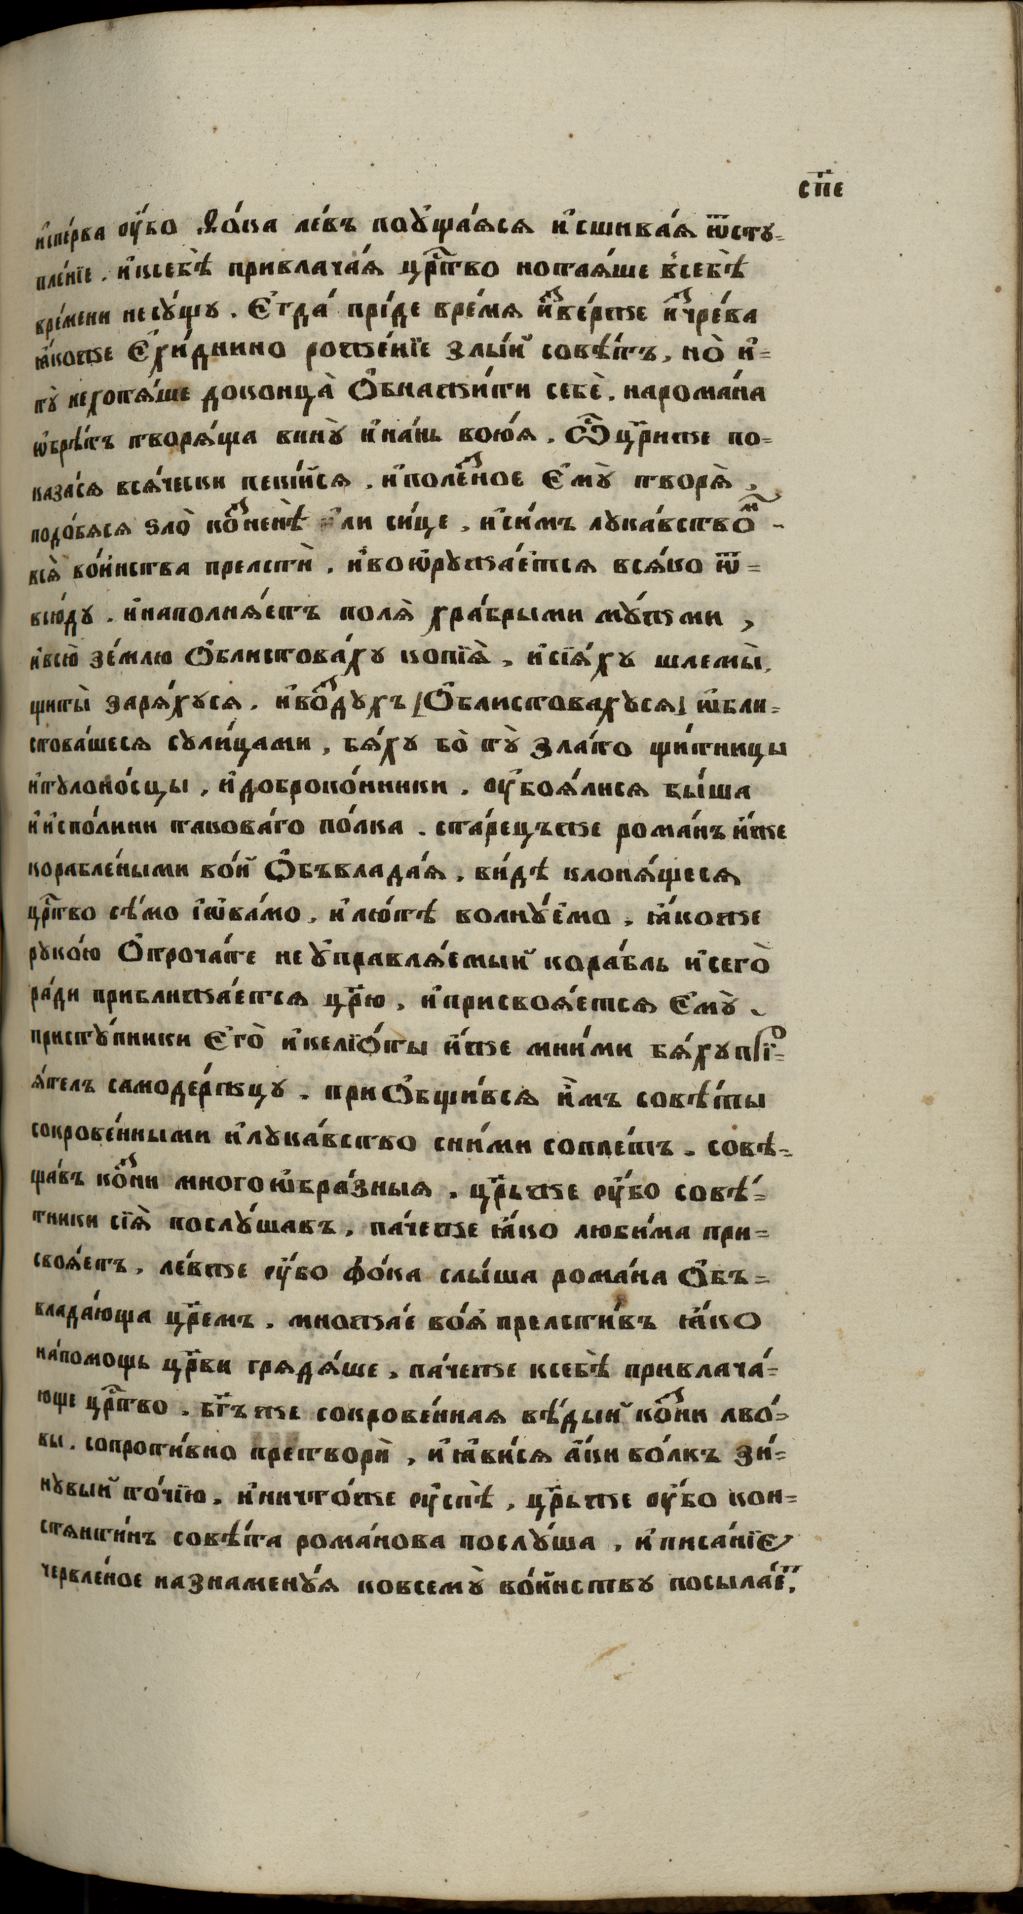 спе
и҆спе́рва ᲂу҆́бо Ѳо́ка ле́въ поꙋща́ѧсѧ и҆сшива́ѧ ѿстꙋ-
пле́нїе. и҆ксебѣ̀ привлача́ѧ цр҃тво нотаѧ́ше в̾себѣ̀
вре́мени несꙋ́щꙋ. Е҆гда́ прі́де вре́мѧ и҆зве́рже и҆зчре́ва
ꙗ҆́коже Е҆хи́днино роже́нїе злы́й совѣ́тъ, но̀ и҆-
тꙋ̀ нехотѧ́ше доконца̀ Ѻ҆бнажи́ти себѐ. нарома́на
ѡ҆брѣ́тъ творѧ́ща винꙋ̀ и҆на́нь вою́ѧ. Ѽ цр҃иже по-
каза́сѧ всѧ́чески пекі́йсѧ. и҆поле́зное Е҆мꙋ̀ творѧ̀,
подо́бѧсѧ ѕло̀ ко́зненѣ и҆ли си́це, и҆си́мъ лꙋка́вство́м
всѧ̀ во́инства прелстѝ. и҆воѡ҆рꙋжа́етсѧ всѧ́ко ѿ-
всю́дꙋ. и҆наполнѧ́етъ полѧ̀ хра́брыми мꙋ́жми,
и҆всю̀ зе́млю Ѻ҆блистова́хꙋ копїѧ̀, и҆сїѧ́хꙋ шлемы̀,
щиты̀ зарѧ́хꙋсѧ. и҆во́здꙋхъ [Ѻ҆блистовахꙋсѧ] ѡ҆бли-
стова́шесѧ сꙋли́цами, бѧ́хꙋ бо̀ тꙋ̀ зла́то щи́тницы
и҆тꙋлоно́сцы, и҆доброко́нники. ᲂу҆боѧ́лисѧ бы́ша
и҆и҆спо́лини такова́го по́лка. ста́рецъже рома́нъ и҆́же
корабле́ными во́й Ѻ҆бъвлада́ѧ, ви́дѣ клонѧ́щесѧ
цр҃тво сѣ́мо і҆ѡ҆ва́мо, и҆лю́тѣ волнꙋ́емо, ꙗ҆́коже
рꙋко́ю Ѻ҆троча́те неꙋ҆правлѧ́емый кора́бль и҆сего̀
ра́ди приближа́етсѧ цр҃ю, и҆присвоѧ́етсѧ Е҆мꙋ̀.
пристꙋ́пники Е҆го̀ и҆келїѻ́ты и҆́же мни́ми бѧ́хꙋ прї-
ѧ́телъ самоде́ржцꙋ. приѻбщи́всѧ и҆́мъ совѣ́ты
сокрове́нными и҆лꙋка́вство сни́ми соплетъ. совѣ-
ща́въ ко́зни многоѡ҆бра́зныѧ. цр҃ьже ᲂу҆́бо совѣ́-
тники сїѧ̀ послꙋ́шавъ, па́чеже ꙗ҆́ко люби́ма при-
своѧ́етъ, ле́вже ᲂу҆́бо фо́ка слы́ша рома́на Ѻ҆бъ-
влада́юща цр҃емъ. множа́е во́ѧ прелсти́въ ꙗ҆́ко
на́помощь цр҃ви грѧдѧ́ше, па́чеже ксебѣ̀ привлача́-
юще цр҃тво. бг҃ъже сокрове́ннаѧ вѣ́дый ко́зни лво́-
вы. сопроти́вно претворѝ, и҆ꙗ҆ви́сѧ а҆́ки во́лкъ зи́-
нꙋвый то́чїю. и҆ничто́же ᲂу҆спѣ̀, цр҃ьже ᲂу҆́бо кон-
стѧнти́нъ совѣ́та рома́нова послꙋ́ша, и҆писа́нїе
червле́ное назнаменꙋ́ѧ ковсемꙋ̀ во́инствꙋ посыла́ет.